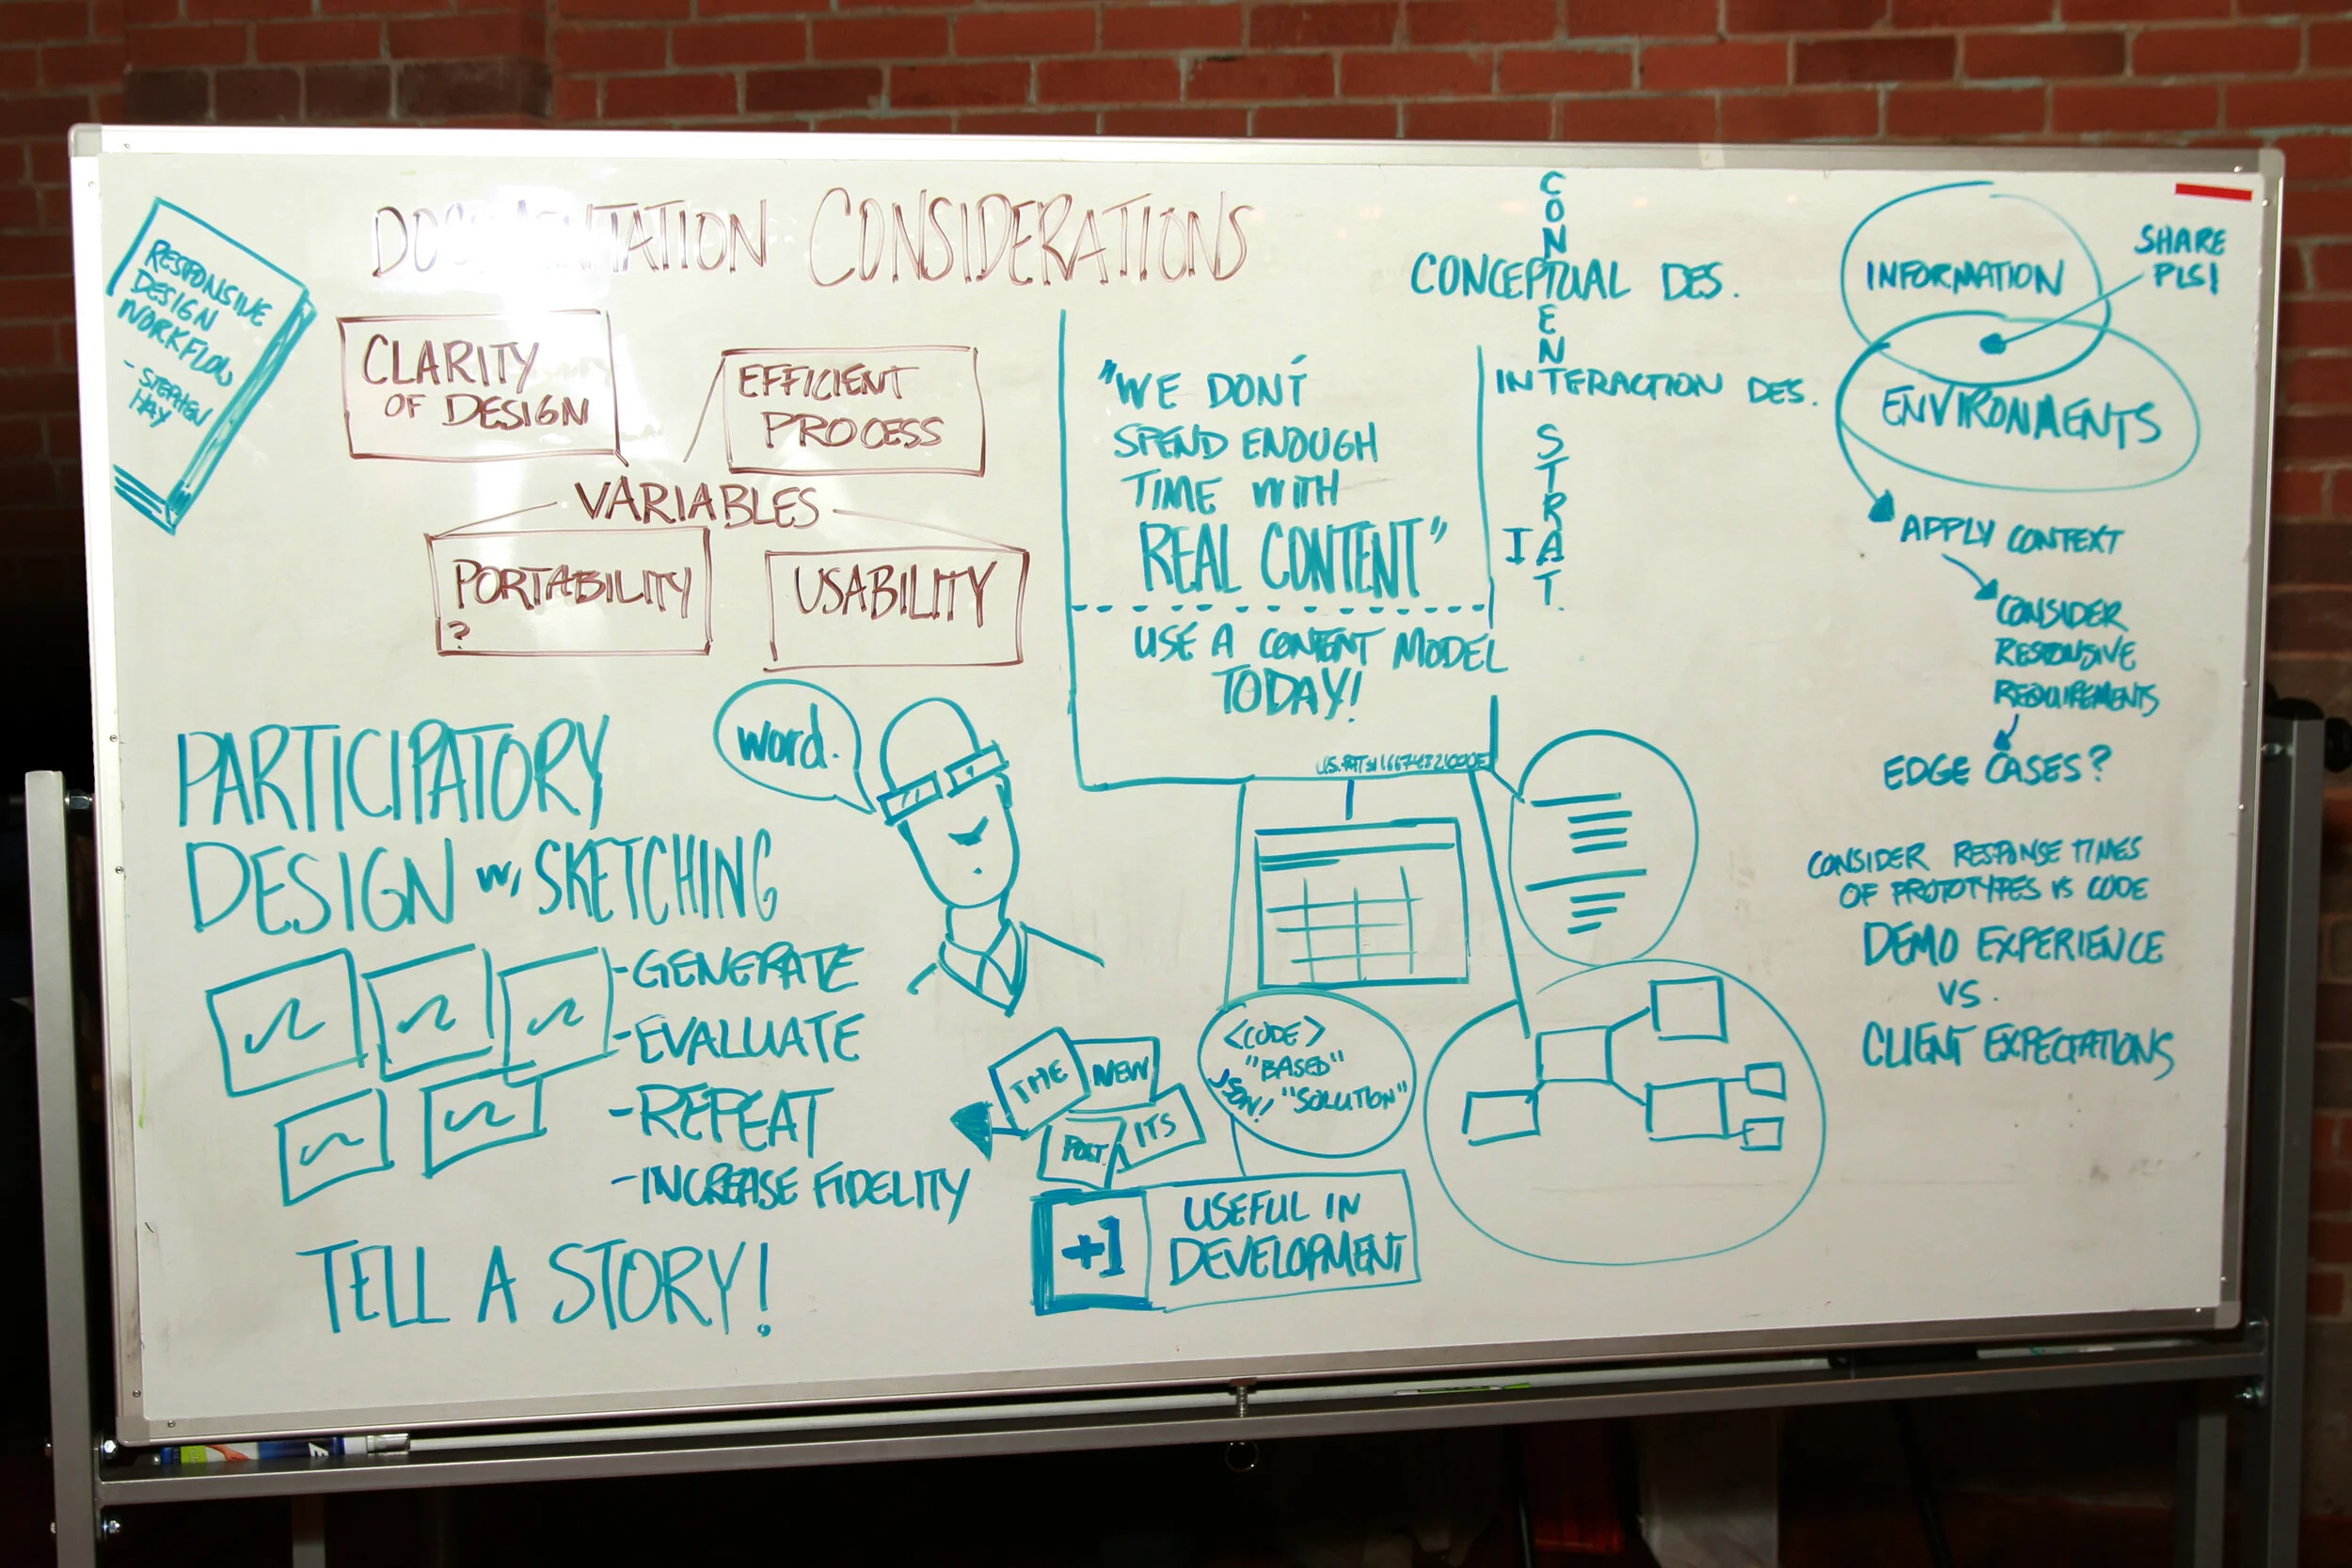 DOCUMENTATION CONSIDERATIONS
RESPONSIVE
DESIGN
WORKFLOW
- STEPHEN
HAY
CLARITY
OF DESIGN
EFFICIENT
PROCESS
VARIABLES
PORTABILITY
?
USABILITY
"WE DON'T
SPEND ENOUGH
TIME WITH
REAL CONTENT"
USE A CONTENT MODEL
TODAY!
CONTENT STRAT.
CONCEPTUAL DES.
INTERACTION DES.
I A
INFORMATION
SHARE
PLS!
ENVIRONMENTS
APPLY CONTEXT
CONSIDER
RESPONSIVE
REQUIREMENTS
EDGE CASES?
CONSIDER RESPONSE TIMES
OF PROTOTYPES VS CODE
DEMO EXPERIENCE
VS.
CLIENT EXPECTATIONS
PARTICIPATORY
DESIGN w/ SKETCHING
word.
-GENERATE
-EVALUATE
-REPEAT
-INCREASE FIDELITY
TELL A STORY!
THE NEW
POST ITS
<CODE>
"BASED"
JSON! "SOLUTION"
+1
USEFUL IN
DEVELOPMENT